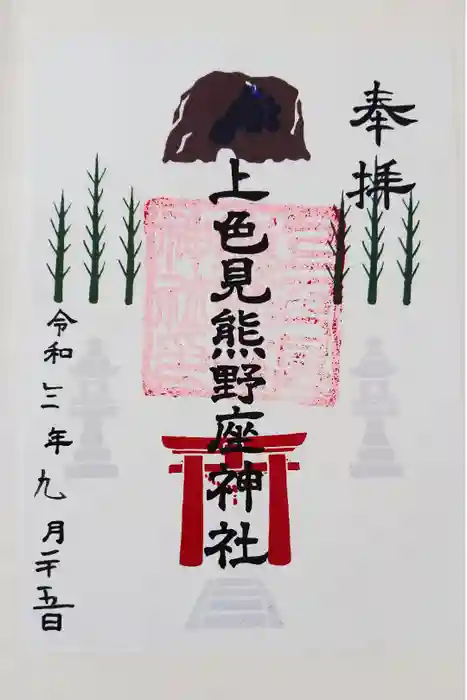 奉拝
上色見熊野座神社
令和三年九月二十五日